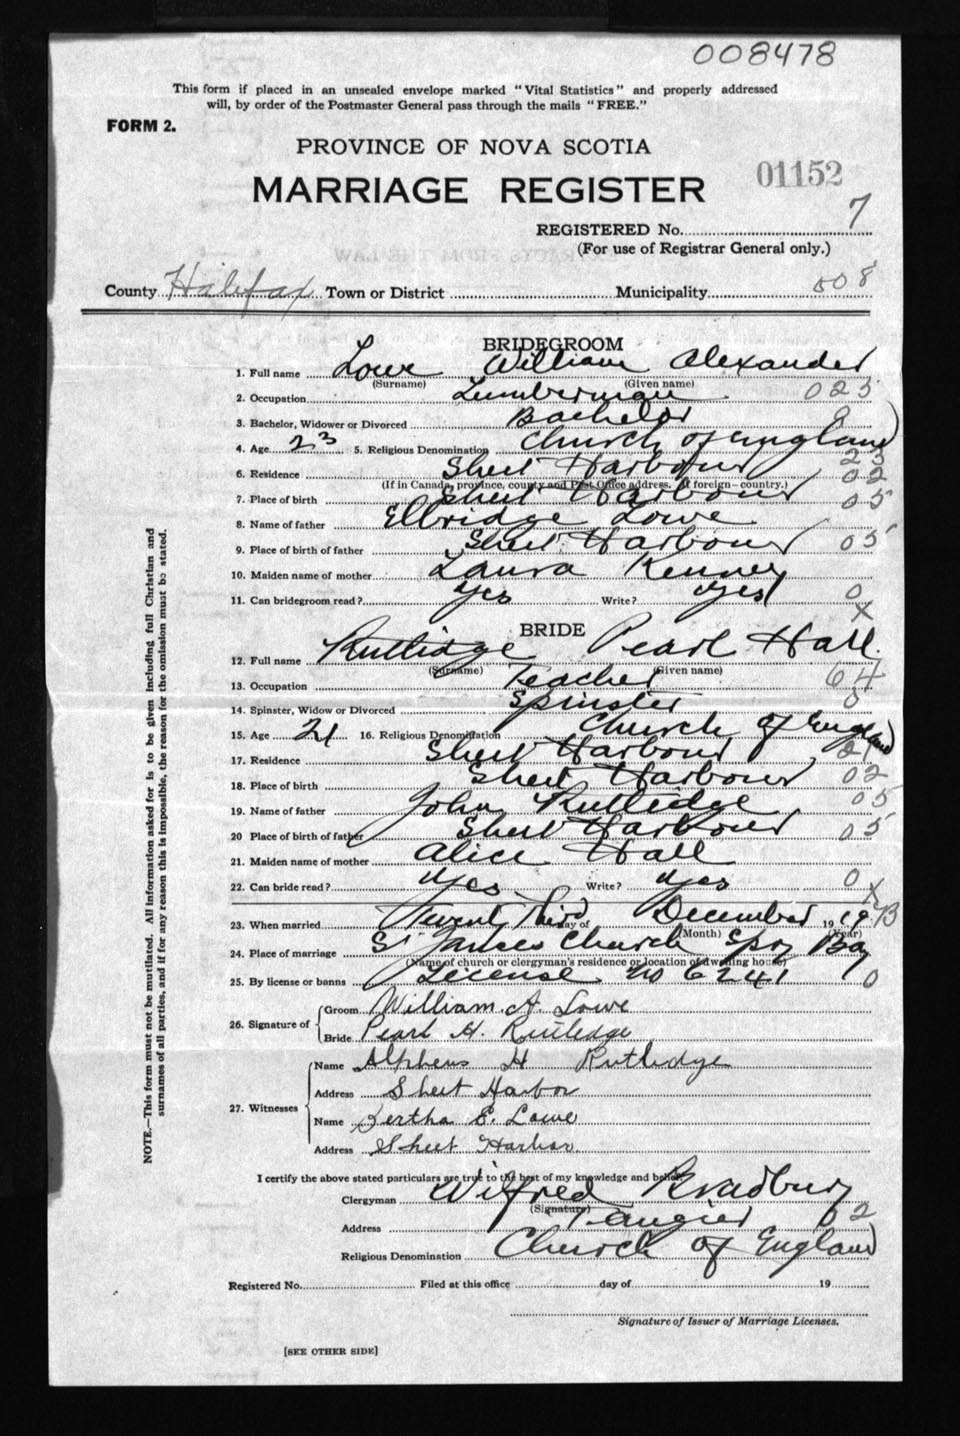 008478
This form if placed in an unsealed envelope marked "Vital Statistics" and properly addressed
will, by order of the Postmaster General pass through the mails "FREE."
FORM 2.
PROVINCE OF NOVA SCOTIA
01152
MARRIAGE REGISTER
REGISTERED No. 7
(For use of Registrar General only.)
County Halifax Town or District Municipality 508
BRIDEGROOM
1. Full name Lowe William Alexander
(Surname) (Given name)
2. Occupation Lumberman 025
3. Bachelor, Widower or Divorced Bachelor 0
4. Age 23 5. Religious Denomination Church of England
23
6. Residence Sheet Harbour 02
(If in Canada, province, county and Post Office address. If foreign—country.)
7. Place of birth Sheet Harbour 05
8. Name of father Elbridge Lowe
9. Place of birth of father Sheet Harbour 05
10. Maiden name of mother Laura Kenney
11. Can bridegroom read? Yes Write? Yes 0
X
BRIDE
12. Full name Rutlidge Pearl Hall
(Surname) (Given name)
13. Occupation Teacher 64
14. Spinster, Widow or Divorced Spinster 0
15. Age 21 16. Religious Denomination Church of England
17. Residence Sheet Harbour 21
18. Place of birth Sheet Harbour 02
19. Name of father John Rutledge 05
20 Place of birth of father Sheet Harbour 05
21. Maiden name of mother Alice Hall
22. Can bride read? Yes Write? Yes 0
X
23. When married Twent Third day of December 19 19 B
(Month) (Year)
24. Place of marriage St James Church Spry Bay
(Name of church or clergyman's residence or location of dwelling house)
25. By license or banns License No 6241 0
26. Signature of Groom William. A. Lowe
Bride Pearl H. Rutledge
27. Witnesses Name Alpheus H Rutledge
Address Sheet Harbor
Name Bertha E. Lowe
Address Sheet Harbor.
I certify the above stated particulars are true to the best of my knowledge and belief.
Clergyman Wilfred Bradbury
(Signature)
Address Tangier 02
Religious Denomination Church of England
Registered No. Filed at this office day of 19
Signature of Issuer of Marriage Licenses.
[SEE OTHER SIDE]
NOTE.—This form must not be mutilated. All information asked for is to be given including full Christian and
surnames of all parties, and if for any reason this is impossible, the reason for the omission must be stated.